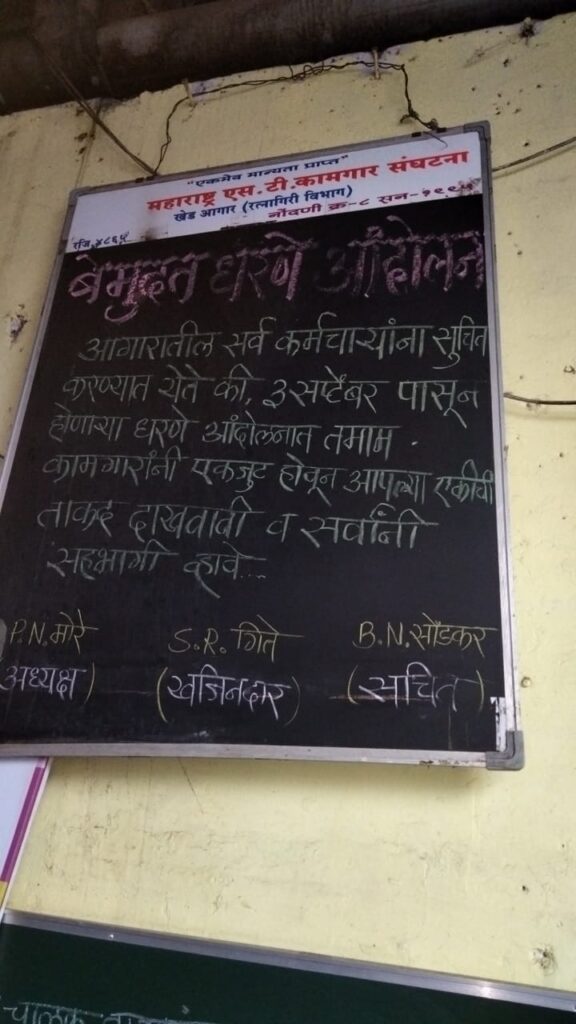 "एकमेव मान्यता प्राप्त"
महाराष्ट्र एस.टी.कामगार संघटना
खेड आगार (रत्नागिरी विभाग)
रजि. ४८६५ नोंदणी क्र-८ सन-१९९५
बेमुदत धरणे आंदोलन
आगारातील सर्व कर्मचाऱ्यांना सुचित
करण्यात येते की, ३सप्टेंबर पासून
होणाऱ्या धरणे आंदोलनात तमाम .
कामगारांनी एकजुट होवून आपल्या एकीची
ताकद दाखवावी व सर्वांनी
सहभागी व्हावे...
P.N.मोरे S.R. गिते B.N.सोंडकर
अध्यक्ष) (खजिनदार) (सचिव)
चालक